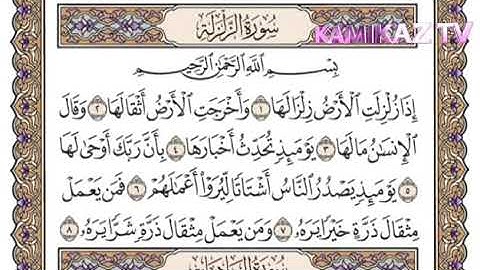 سُورَةُ الزَّلْزَلَةِ
KAMIKAZ TV
بِسْمِ اللَّهِ الرَّحْمَٰنِ الرَّحِيمِ
إِذَا زُلْزِلَتِ الْأَرْضُ زِلْزَالَهَا ١ وَأَخْرَجَتِ الْأَرْضُ أَثْقَالَهَا ٢ وَقَالَ
الْإِنسَانُ مَا لَهَا ٣ يَوْمَئِذٍ تُحَدِّثُ أَخْبَارَهَا ٤ بِأَنَّ رَبَّكَ أَوْحَىٰ لَهَا
٥ يَوْمَئِذٍ يَصْدُرُ النَّاسُ أَشْتَاتًا لِّيُرَوْا أَعْمَالَهُمْ ٦ فَمَن يَعْمَلْ
مِثْقَالَ ذَرَّةٍ خَيْرًا يَرَهُۥ ٧ وَمَن يَعْمَلْ مِثْقَالَ ذَرَّةٍ شَرًّا يَرَهُۥ ٨
سُورَةُ الْعَادِيَاتِ